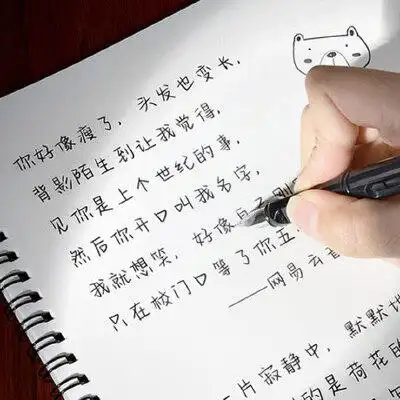 你好像瘦了，头发也变长，
背影陌生到让我觉得，
见你是上个世纪的事，
然后你开口叫我名字，
我就想笑，好像
只在校门口等了你五
——网易云
片寂静中，默默地
的是荷花的